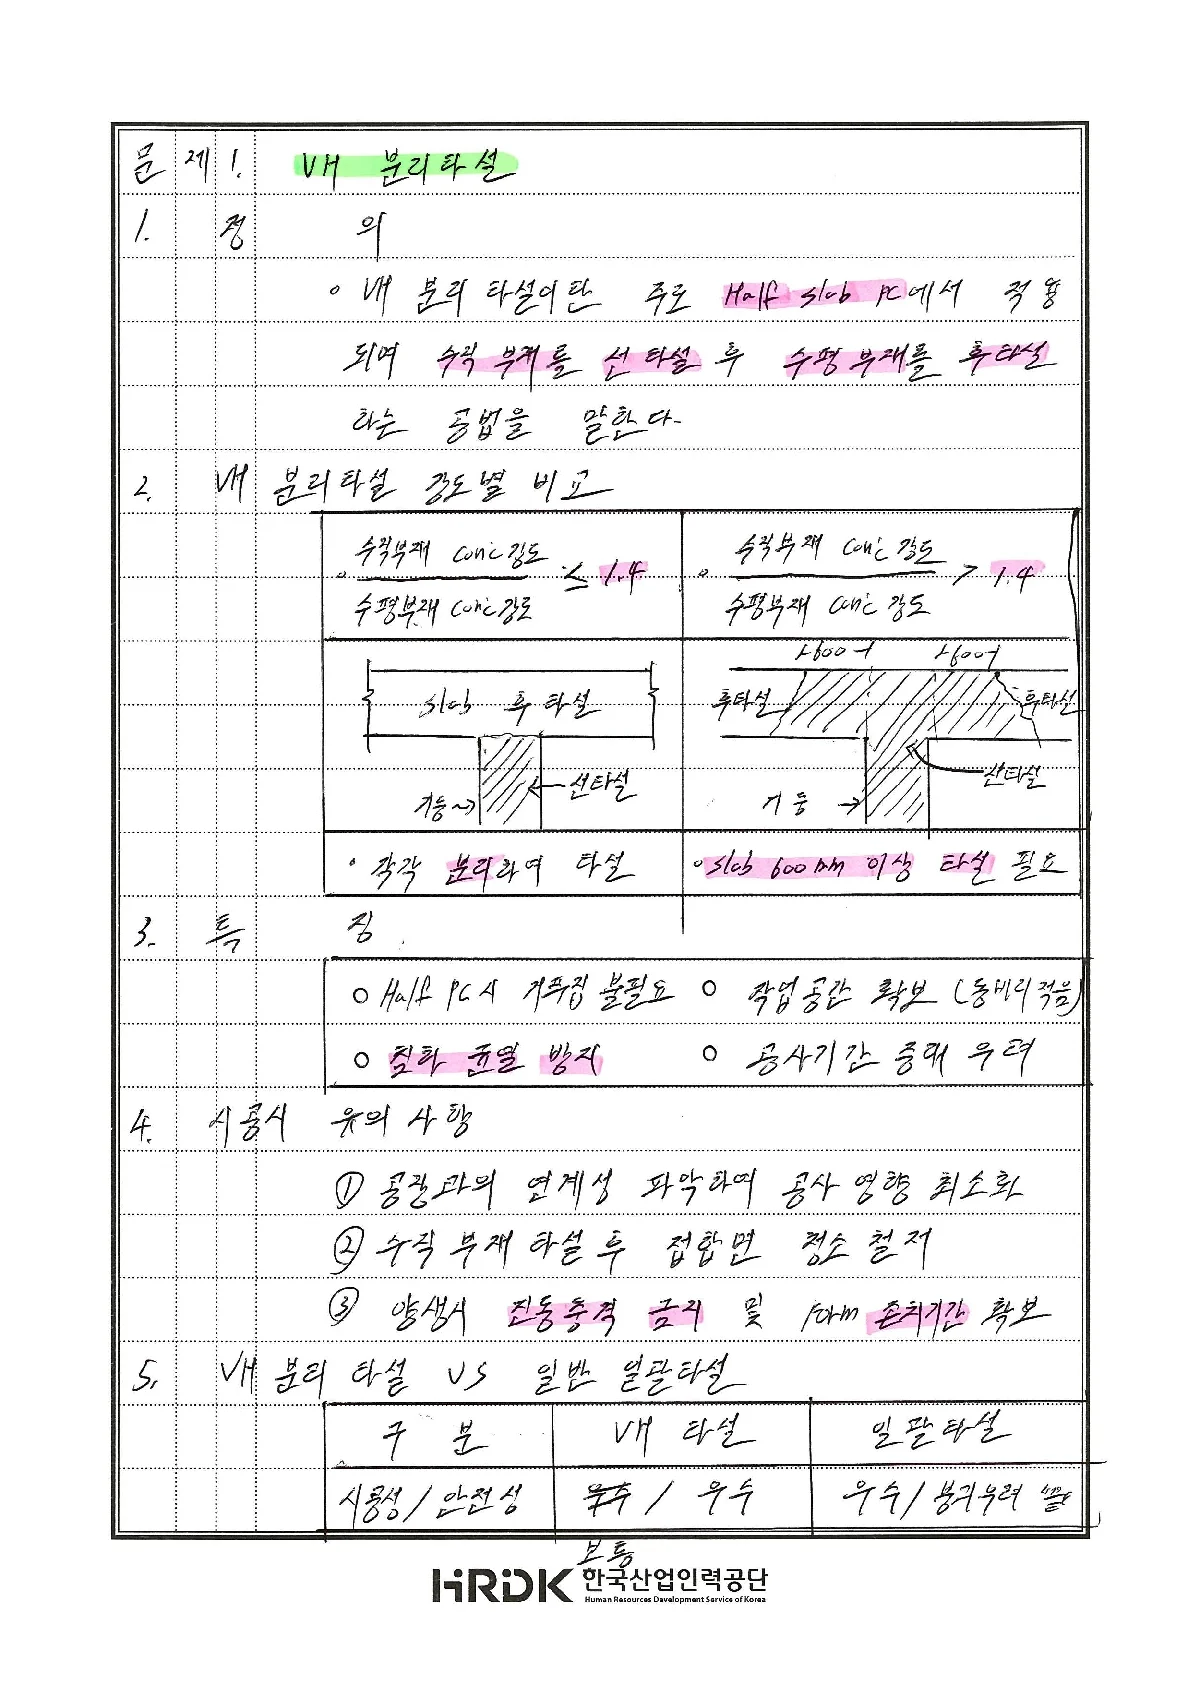 문제 1. VH 분리타설
1. 정 의
◦ VH 분리 타설이란 주로 Half slab PC에서 적용
되며 수직 부재를 선 타설 후 수평 부재를 후타설
하는 공법을 말한다.
2. VH 분리타설 강도별 비교
◦ 수직부재 con'c 강도 / 수평부재 con'c 강도 ≤ 1.4
◦ 수직부재 con'c 강도 / 수평부재 con'c 강도 > 1.4
slab 후타설
선타설
기둥→
600 600
후타설 후타설
선타설
기둥 →
◦ 각각 분리하여 타설
◦ slab 600mm 이상 타설 필요
3. 특 징
○ Half PC시 거푸집 불필요 ○ 작업공간 확보 (동바리 적음)
○ 침하 균열 방지 ○ 공사기간 증대 우려
4. 시공시 유의 사항
① 공정과의 연계성 파악하여 공사 영향 최소화
② 수직 부재 타설 후 접합면 청소 철저
③ 양생시 진동충격 금지 및 form 존치기간 확보
5. VH 분리 타설 VS 일반 일괄타설
구 분 VH 타설 일괄타설
시공성/안전성 우수 / 우수 우수/붕괴우려 "끝"
보통
HRDK 한국산업인력공단
Human Resources Development Service of Korea